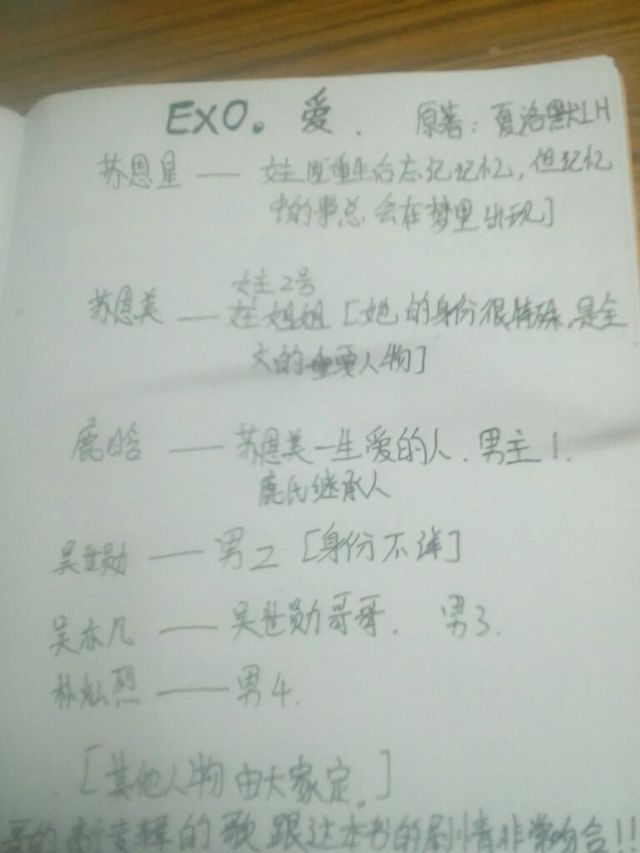 EXO。爱.  原著：夏洛默LH
苏恩星 — 女主[重生后忘记记忆，但记忆
中的事总会在梦里出现]
女主2号
苏恩美 — 姐姐 [她的身份很特殊，是全
文的重要人物]
鹿晗 — 苏恩美一生爱的人. 男主1.
鹿氏继承人
吴世勋 — 男2 [身份不详]
吴亦凡 — 吴世勋哥哥. 男3.
朴灿烈 — 男4.
[其他人物由大家定。]
哥的新专辑的歌跟这本书的剧情非常吻合!!